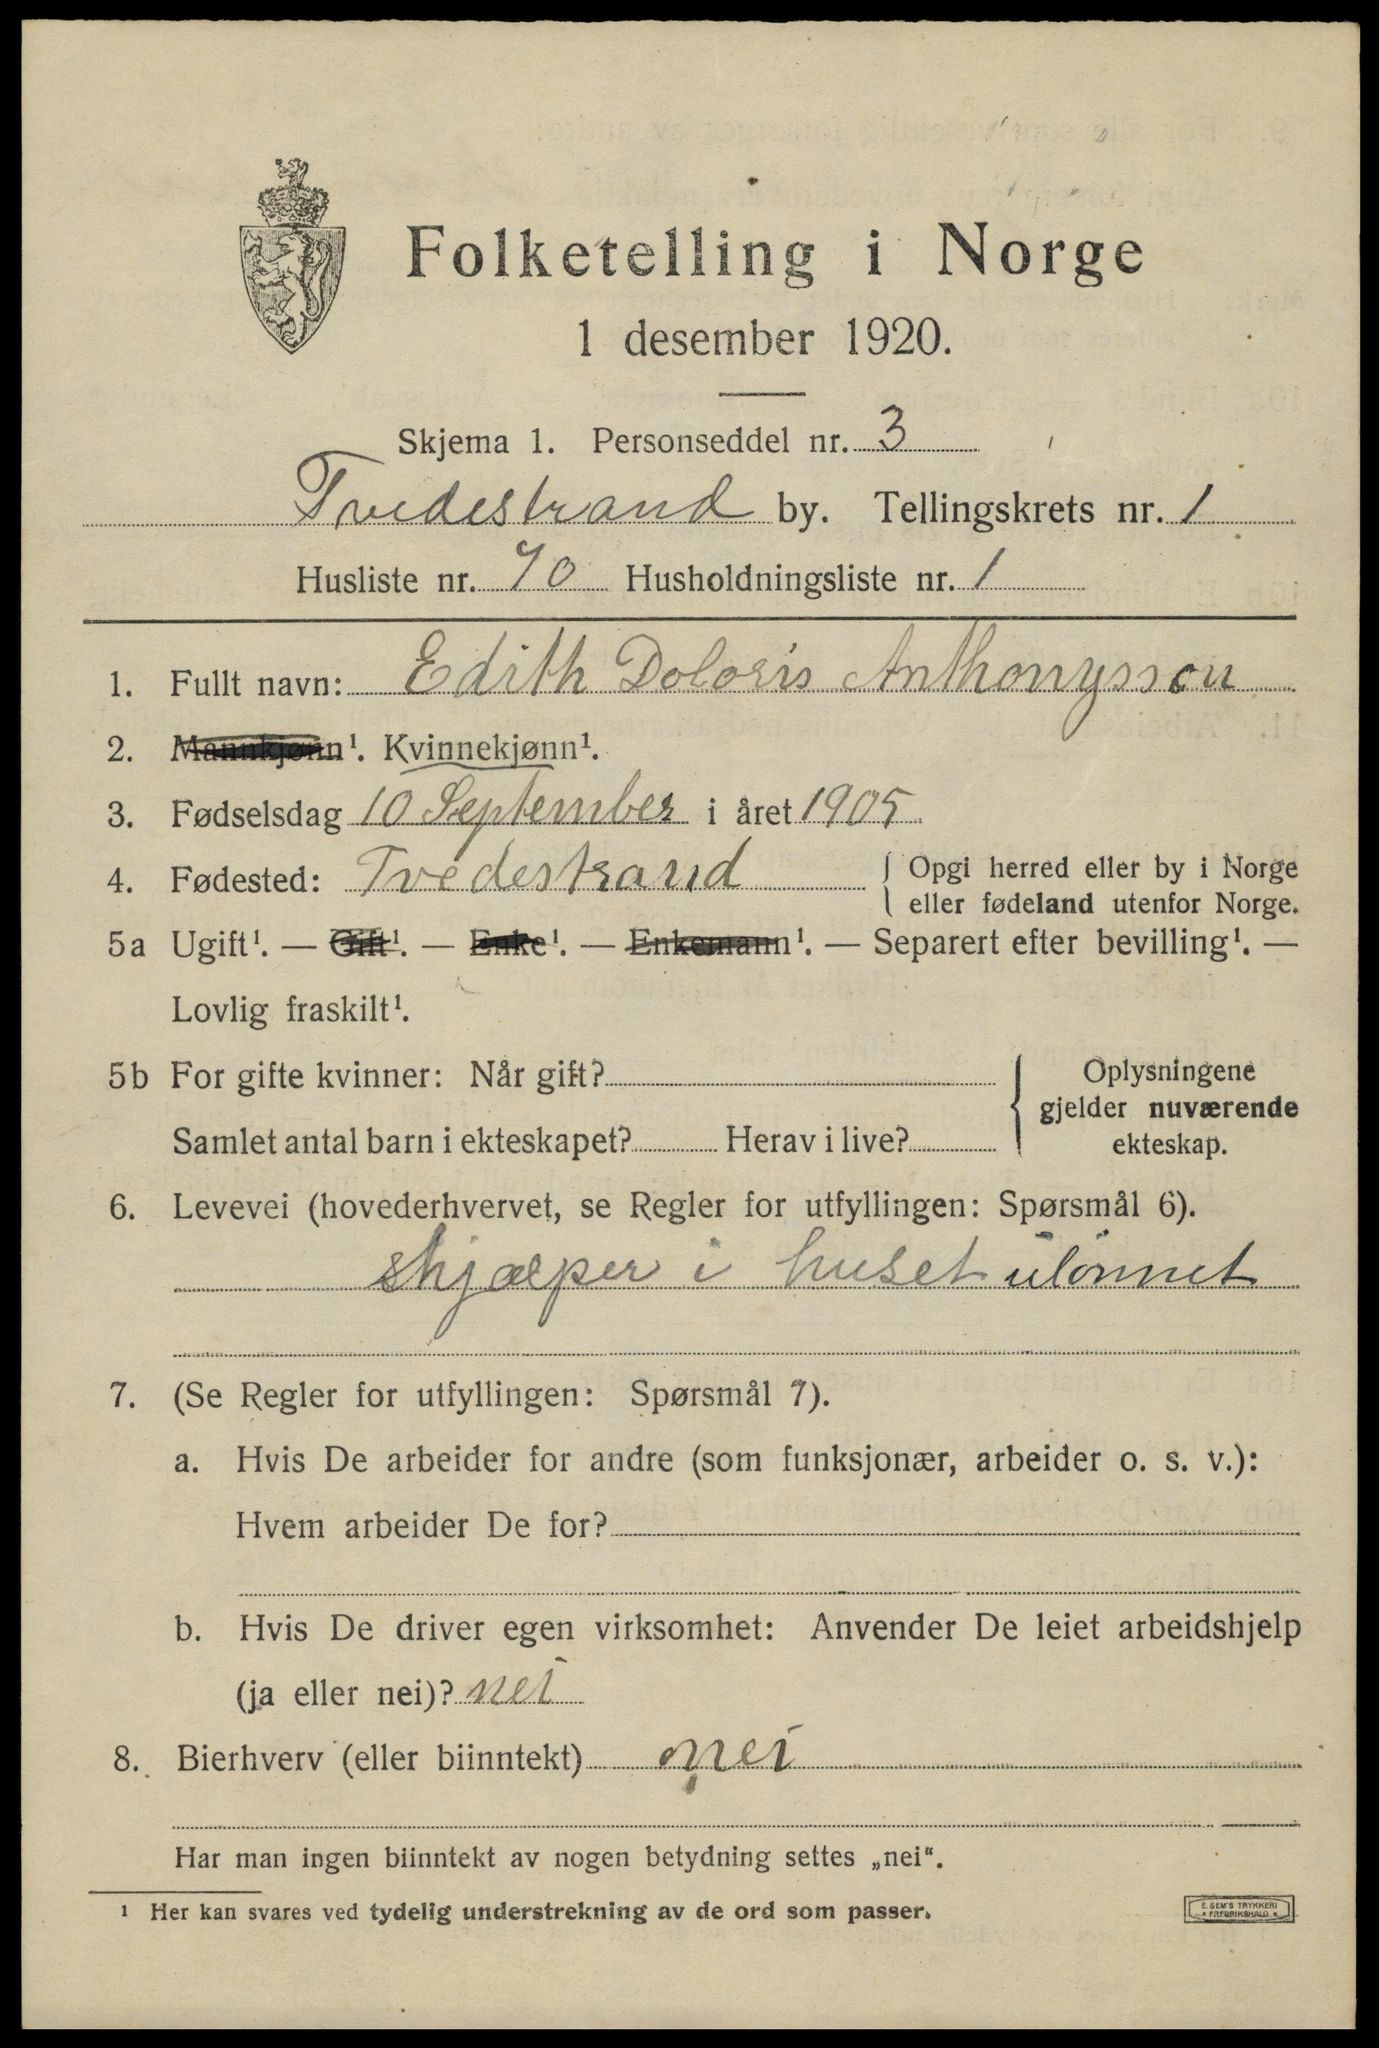 Folketelling i Norge
1 desember 1920.
Skjema 1. Personseddel nr. 3
Tvedestrand by. Tellingskrets nr. 1
Husliste nr. 70 Husholdningsliste nr. 1
1. Fullt navn: Edith Doloris Anthonyssen
2. Mannkjønn¹. Kvinnekjønn¹.
3. Fødselsdag 10 September i året 1905
4. Fødested: Tvedestrand { Opgi herred eller by i Norge
eller fødeland utenfor Norge.
5a Ugift¹. — Gift¹. — Enke¹. — Enkemann¹. — Separert efter bevilling¹. —
Lovlig fraskilt¹.
5b For gifte kvinner: Når gift?
Samlet antal barn i ekteskapet? Herav i live?
{ Oplysningene
gjelder nuværende
ekteskap.
6. Levevei (hovederhvervet, se Regler for utfyllingen: Spørsmål 6).
hjælper i huset ulønnet
7. (Se Regler for utfyllingen: Spørsmål 7).
a. Hvis De arbeider for andre (som funksjonær, arbeider o. s. v.):
Hvem arbeider De for?
b. Hvis De driver egen virksomhet: Anvender De leiet arbeidshjelp
(ja eller nei)? nei
8. Bierhverv (eller biinntekt) nei
Har man ingen biinntekt av nogen betydning settes „nei“.
¹ Her kan svares ved tydelig understrekning av de ord som passer.
E. SEM'S TRYKKERI
FREDRIKSHALD